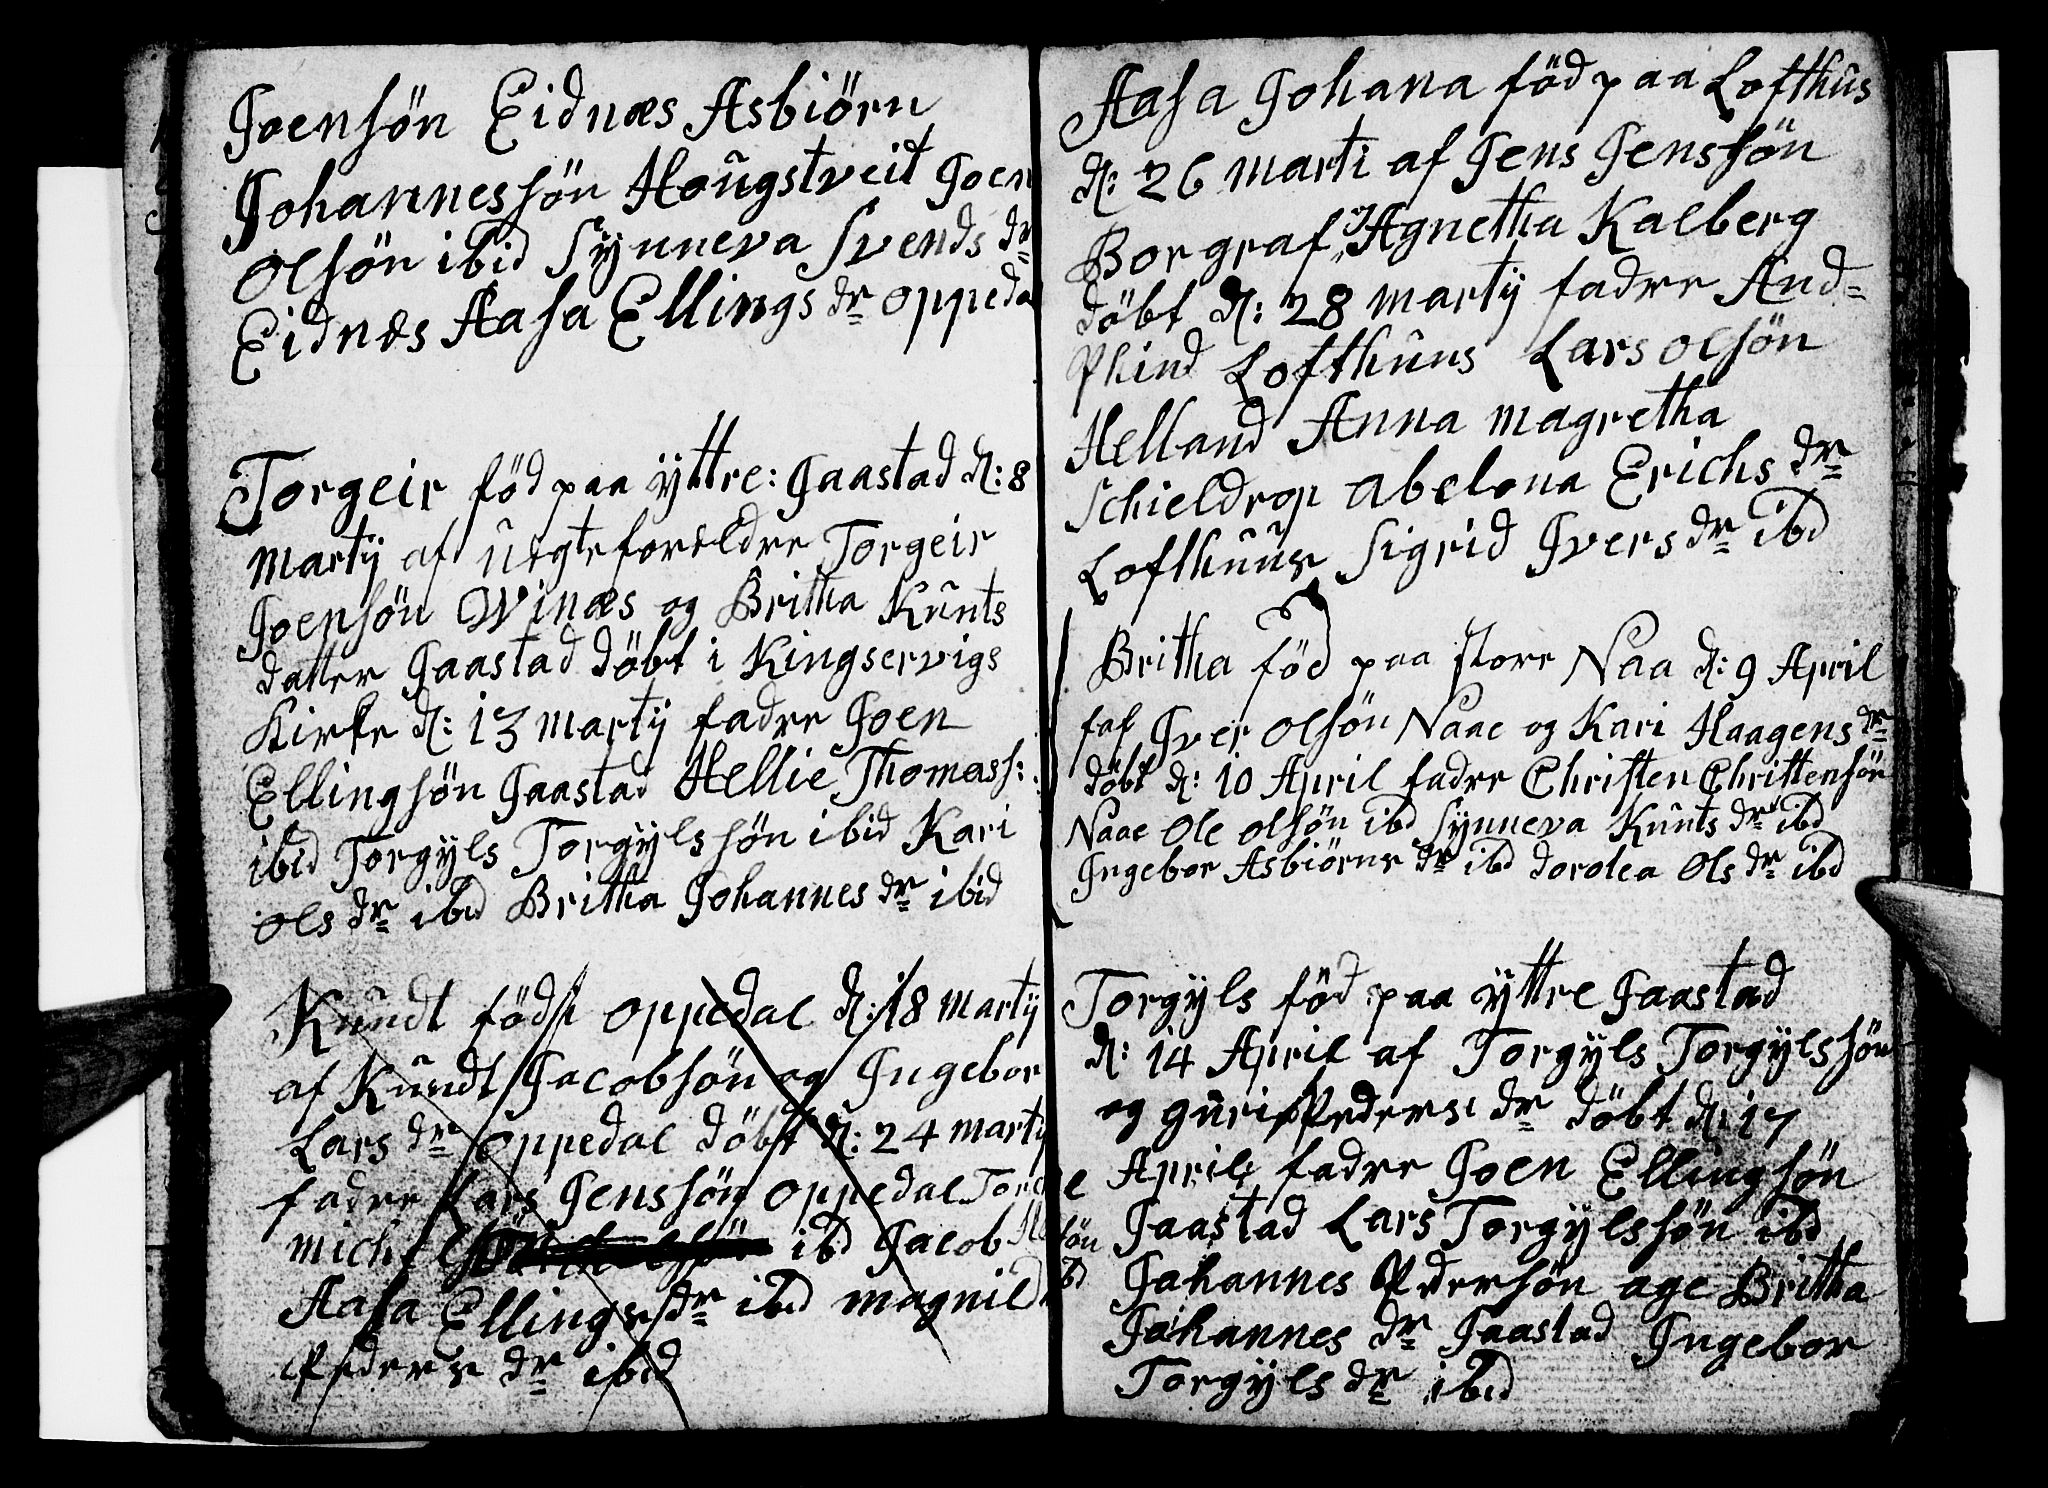 Joensön Eidnæs Asbiörn
Johannessön Hougstveit Joen
Olsön ibid Synneva Svends dr
Eidnæs Aasa Ellings dr Oppeda
Torgeir föd paa yttre: Jaastad d: 8
Marty af uegteforeldre Torgeir
Joensön Winæs og Britha Kunts
datter Jaastad döbt i Kingservigs
Kirke d: 13 Marty fadre Joen
Ellingsön Jaastad Hellie Thomass:
ibid Torgyls Torgylssön ibid Kari
Ols dr ibid Britha Johannes dr ibid
Kundt föd p Oppedal d: 18 Marty
af Kundt Jacobsön og Ingebor
Lars dr Oppedal döbt d: 24 Marty
fadre Lars Jenssön Oppedal Tore
Michelsön ibd Jacob
Aasa Ellings dr ibid Magnild
Peders dr ibid
Aasa Johana föd paa Lofthus
d: 26 Marti af Jens Jenssön
Borgraf, Agnetha Kalberg
döbt d: 28 Marty fadre And=
Phind Lofthuus Lars Olsön
Helland Anna Magretha
Schieldrop Abelona Erichs dr
Lofthuus Sigrid Ivers dr ibd
Britha föd paa store Naa d: 9 April
af Iver Olsön Naae og Kari Haagens dr
döbt d: 10 April fadre Christen Christensön
Naae Ole Olsön ibd Synneva Kunts dr ibd
Ingebor Asbiörns dr ibd Dorotea Ols dr ibd
Torgyls föd paa yttre Jaastad
d: 14 April af Torgyls Torgylssön
og Guri Peders dr döbt d: 17
April: fadre Joen Ellingsön
Jaastad Lars Torgylssön ibd
Johannes Pedersön Age Britha
Johannes dr Jaastad Ingebor
Torgyls dr ibid